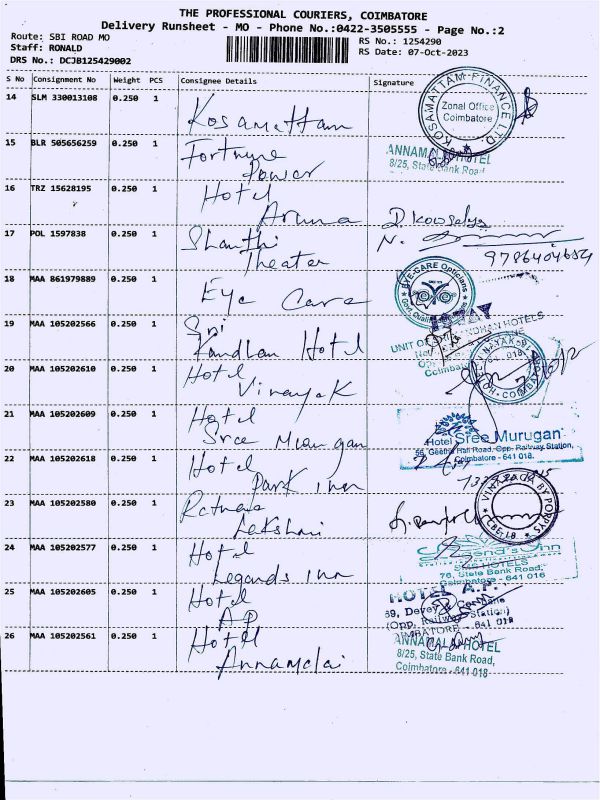 THE PROFESSIONAL COURIERS, COIMBATORE
Delivery Runsheet - MO - Phone No.:0422-3505555 - Page No.:2
Route: SBI ROAD MO
RS No.: 1254290
Staff: RONALD
RS Date: 07-Oct-2023
DRS No.: DCJB125429002
S No Consignment No Weight PCS Consignee Details Signature
14 SLM 330013108 0.250 1 Kosamattam
KOSAMATTAM FINANCE LTD.
Zonal Office
Coimbatore
15 BLR 505656259 0.250 1 Fortune
Power
ANNAMALAI HOTEL
8/25, State Bank Road
16 TRZ 15628195 0.250 1 Hotel
Aruna
D. Kowsalya
17 POL 1597838 0.250 1 Shanthi
Theater
N.
9786404654
18 MAA 861979889 0.250 1 Eye Care
EYE-CARE Opticians
19 MAA 105202566 0.250 1 Sri
Kandhan Hotel
UNIT OF HOTELS
Coimbatore
20 MAA 105202610 0.250 1 Hotel
Vinayak
21 MAA 105202609 0.250 1 Hotel
Sree Murugan
Hotel Sree Murugan
56, Geetha Hall Road, Opp. Railway Station,
Coimbatore - 641 018.
22 MAA 105202618 0.250 1 Hotel
Park Inn
23 MAA 105202580 0.250 1 Ratna
Lakshmi
BY POPPYS
CBE-18
24 MAA 105202577 0.250 1 Hotel
Legands Inn
Legend's Inn
SMS HOTELS
76, State Bank Road,
Coimbatore - 641 018
25 MAA 105202605 0.250 1 Hotel
AP
HOTEL A.P.
(Opp. Railway Station)
COIMBATORE - 641 018
26 MAA 105202561 0.250 1 Hotel
Annamalai
ANNAMALAI HOTEL
8/25, State Bank Road,
Coimbatore - 641 018